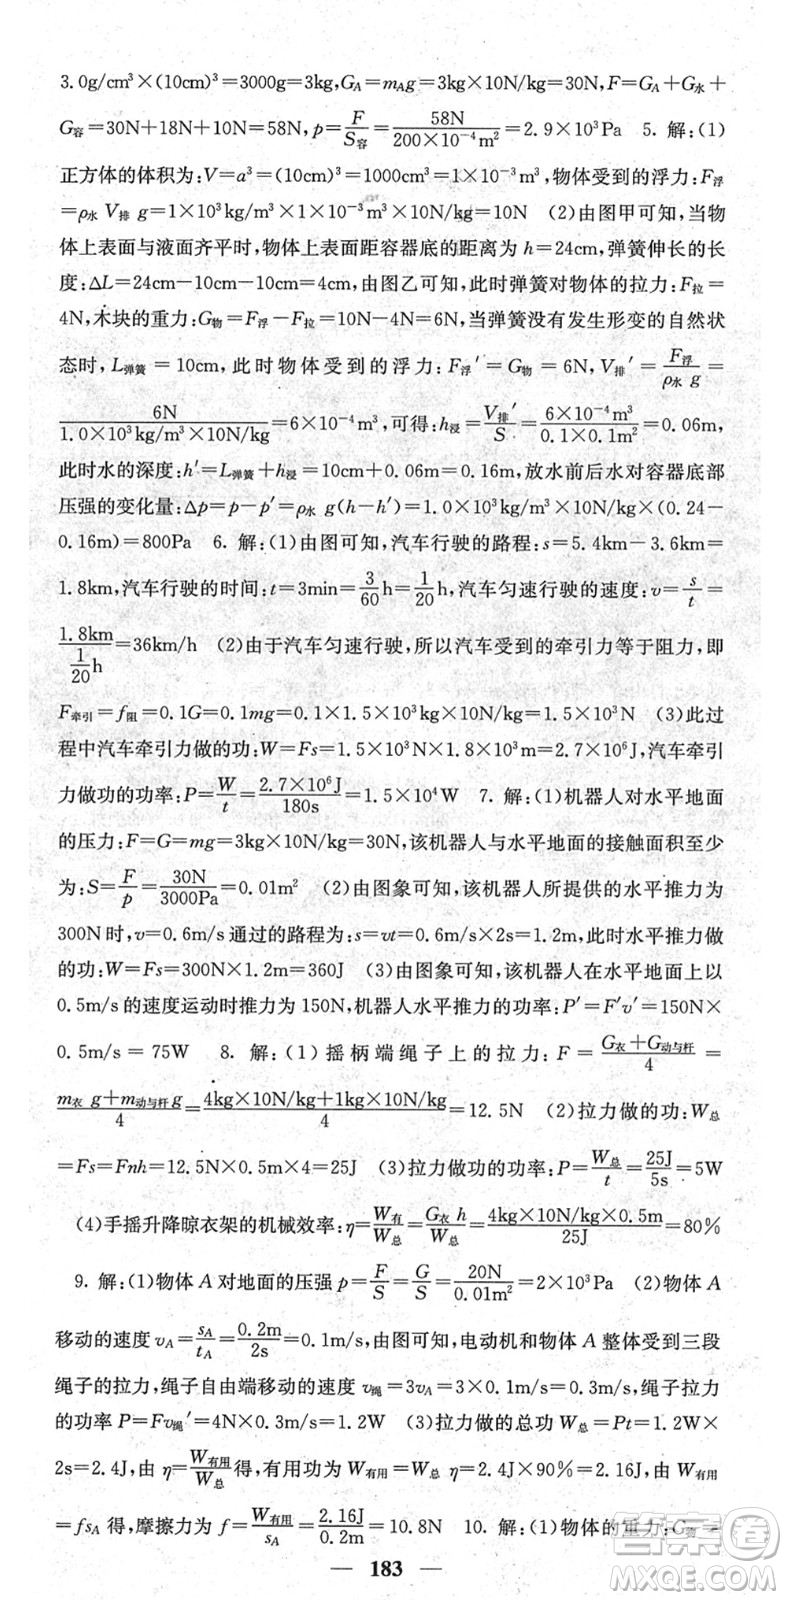 3.0g/cm³×(10cm)³=3000g=3kg,G_A=m_Ag=3kg×10N/kg=30N,F=G_A+G_水+
G_容=30N+18N+10N=58N,p=F/S_容=58N/(200×10⁻⁴m²)=2.9×10³Pa 5. 解:(1)
正方体的体积为:V=a³=(10cm)³=1000cm³=1×10⁻³m³,物体受到的浮力:F_浮
=ρ_水 V_排 g=1×10³kg/m³×1×10⁻³m³×10N/kg=10N (2)由图甲可知,当物
体上表面与液面齐平时,物体上表面距容器底的距离为 h=24cm,弹簧伸长的长
度:ΔL=24cm-10cm-10cm=4cm,由图乙可知,此时弹簧对物体的拉力:F_拉=
4N,木块的重力:G_物=F_浮-F_拉=10N-4N=6N,当弹簧没有发生形变的自然状
态时,L_弹簧=10cm,此时物体受到的浮力:F_浮′=G_物=6N,V_排′=F_浮′/(ρ_水 g)=
6N/(1.0×10³kg/m³×10N/kg)=6×10⁻⁴m³,可得:h_浸=V_排′/S=6×10⁻⁴m³/(0.1×0.1m²)=0.06m,
此时水的深度:h′=L_弹簧+h_浸=10cm+0.06m=0.16m,放水前后水对容器底部
压强的变化量:Δp=p-p′=ρ_水 g(h-h′)=1.0×10³kg/m³×10N/kg×(0.24-
0.16m)=800Pa 6. 解:(1)由图可知,汽车行驶的路程:s=5.4km-3.6km=
1.8km,汽车行驶的时间:t=3min=3/60h=1/20h,汽车匀速行驶的速度:v=s/t=
1.8km/(1/20 h)=36km/h (2)由于汽车匀速行驶,所以汽车受到的牵引力等于阻力,即
F_牵引=f_阻=0.1G=0.1mg=0.1×1.5×10³kg×10N/kg=1.5×10³N (3)此过
程中汽车牵引力做的功:W=Fs=1.5×10³N×1.8×10³m=2.7×10⁶J,汽车牵引
力做功的功率:P=W/t=2.7×10⁶J/180s=1.5×10⁴W 7. 解:(1)机器人对水平地面
的压力:F=G=mg=3kg×10N/kg=30N,该机器人与水平地面的接触面积至少
为:S=F/p=30N/3000Pa=0.01m² (2)由图象可知,该机器人所提供的水平推力为
300N时,v=0.6m/s通过的路程为:s=vt=0.6m/s×2s=1.2m,此时水平推力做
的功:W=Fs=300N×1.2m=360J (3)由图象可知,该机器人在水平地面上以
0.5m/s的速度运动时推力为150N,机器人水平推力的功率:P′=F′v′=150N×
0.5m/s=75W 8. 解:(1)摇柄端绳子上的拉力:F=(G_衣+G_动与杆)/4=
(m_衣 g+m_动与杆 g)/4=(4kg×10N/kg+1kg×10N/kg)/4=12.5N (2)拉力做的功:W_总
=Fs=Fnh=12.5N×0.5m×4=25J (3)拉力做功的功率:P=W_总/t=25J/5s=5W
(4)手摇升降晾衣架的机械效率:η=W_有/W_总=G_衣 h/W_总=4kg×10N/kg×0.5m/25J=80%
9. 解:(1)物体A对地面的压强 p=F/S=G/S=20N/0.01m²=2×10³Pa (2)物体A
移动的速度 v_A=s_A/t_A=0.2m/2s=0.1m/s,由图可知,电动机和物体A整体受到三段
绳子的拉力,绳子自由端移动的速度 v_绳=3v_A=3×0.1m/s=0.3m/s,绳子拉力
的功率 P=Fv_绳′=4N×0.3m/s=1.2W (3)拉力做的总功 W_总=Pt=1.2W×
2s=2.4J,由 η=W_有用/W_总得,有用功为 W_有用=W_总 η=2.4J×90%=2.16J,由 W_有用
=fs_A 得,摩擦力为 f=W_有用/s_A=2.16J/0.2m=10.8N 10. 解:(1)物体的重力:G_物=
— 183 —
答案圈
MXQE.COM